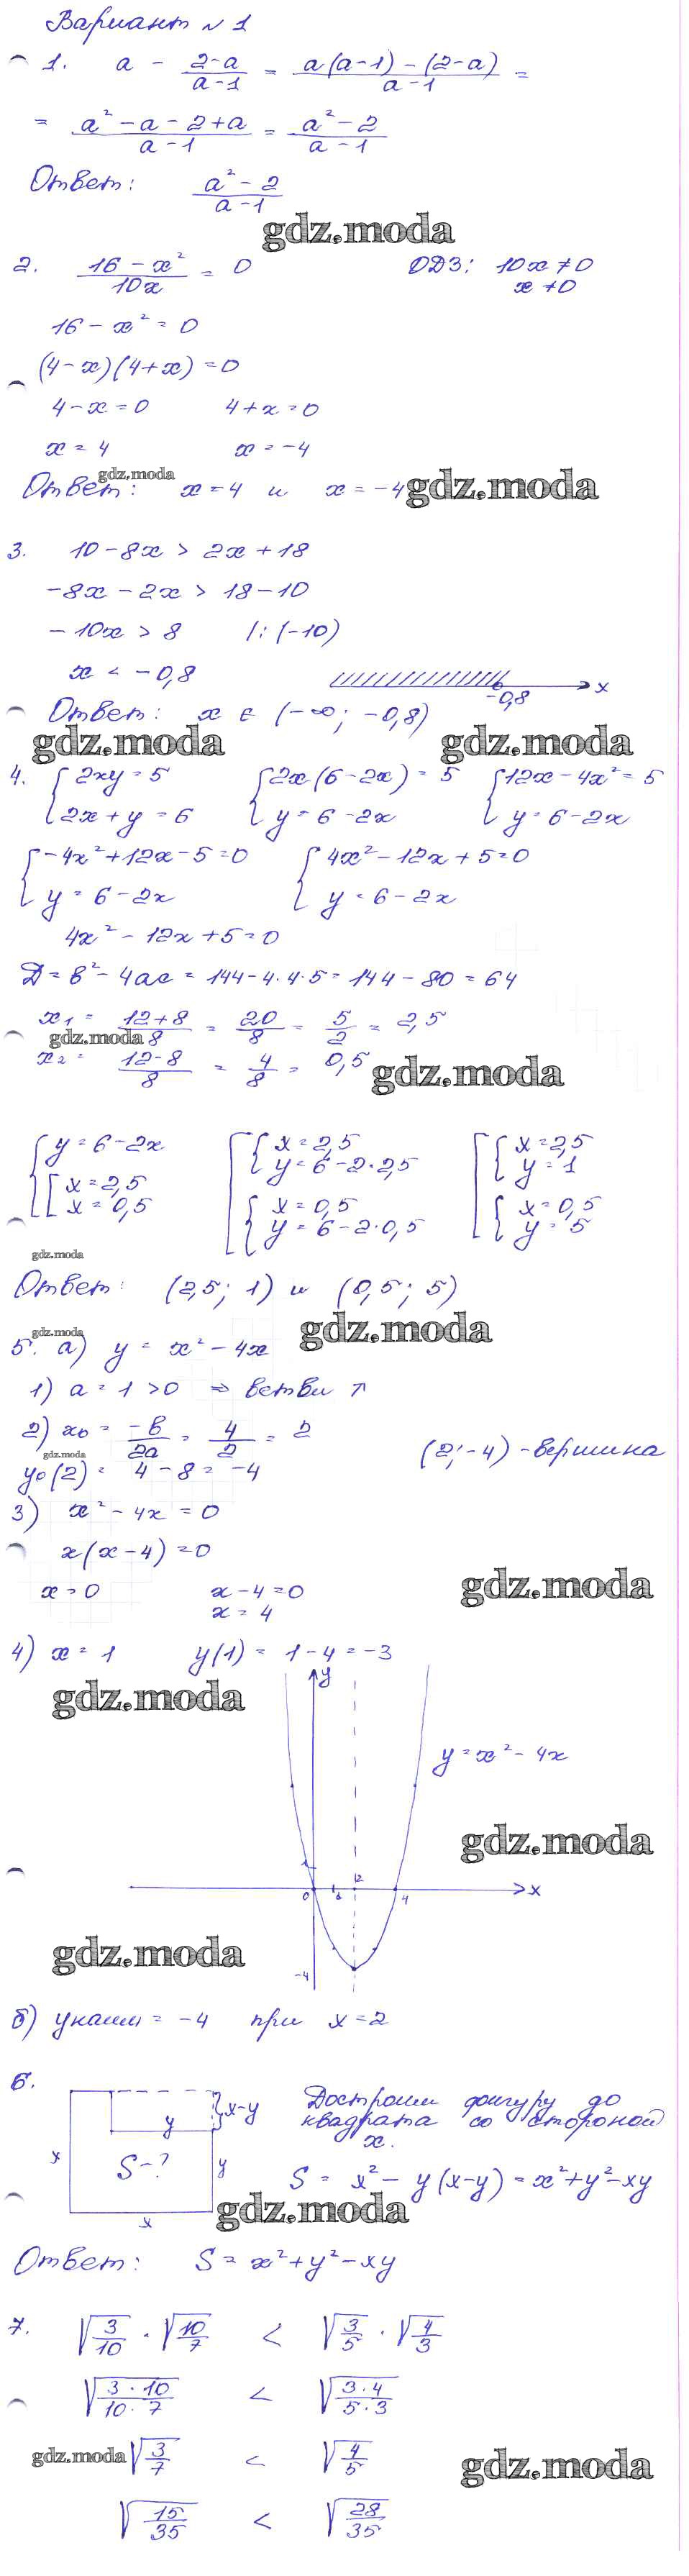 Вариант №1
1. a - (2-a)/(a-1) = (a(a-1) - (2-a))/(a-1) =
= (a² - a - 2 + a)/(a-1) = (a² - 2)/(a-1)
Ответ: (a² - 2)/(a-1)
gdz.moda
2. (16 - x²)/(10x) = 0 ОДЗ: 10x ≠ 0
x ≠ 0
16 - x² = 0
(4-x)(4+x) = 0
4-x = 0 4+x = 0
x = 4 x = -4
gdz.moda
Ответ: x = 4 и x = -4
gdz.moda
3. 10 - 8x > 2x + 18
-8x - 2x > 18 - 10
-10x > 8 |: (-10)
x < -0,8
-0,8 x
Ответ: x ∈ (-∞; -0,8)
gdz.moda gdz.moda
4. { 2xy = 5 { 2x(6-2x) = 5 { 12x - 4x² = 5
{ 2x + y = 6 { y = 6 - 2x { y = 6 - 2x
{ -4x² + 12x - 5 = 0 { 4x² - 12x + 5 = 0
{ y = 6 - 2x { y = 6 - 2x
4x² - 12x + 5 = 0
Д = в² - 4ac = 144 - 4·4·5 = 144 - 80 = 64
x₁ = (12+8)/8 = 20/8 = 5/2 = 2,5
gdz.moda
x₂ = (12-8)/8 = 4/8 = 0,5
gdz.moda
{ y = 6 - 2x [ { x = 2,5 [ { x = 2,5
{ [ x = 2,5 [ { y = 6 - 2·2,5 [ { y = 1
{ [ x = 0,5 [ { x = 0,5 [ { x = 0,5
[ { y = 6 - 2·0,5 [ { y = 5
gdz.moda
Ответ: (2,5; 1) и (0,5; 5)
gdz.moda gdz.moda
5. а) y = x² - 4x
1) a = 1 > 0 ⇒ ветви ↑
2) x₀ = -в/2a = 4/2 = 2
gdz.moda
(2; -4) - вершина
y₀(2) = 4 - 8 = -4
3) x² - 4x = 0
x(x-4) = 0
gdz.moda
x = 0 x - 4 = 0
x = 4
4) x = 1 y(1) = 1 - 4 = -3
y
gdz.moda
y = x² - 4x
gdz.moda
1
2
0 1 4 x
gdz.moda
-4
б) yнаим = -4 при x = 2
6.
x-y
y
x
S-?
y
x
Достроим фигуру до
квадрата со стороной
x.
S = x² - y(x-y) = x² + y² - xy
gdz.moda
Ответ: S = x² + y² - xy
7. √(3/10) · √(10/7) < √(3/5) · √(4/3)
√((3·10)/(10·7)) < √((3·4)/(5·3))
gdz.moda √(3/7) < √(4/5) gdz.moda
√(15/35) < √(28/35)